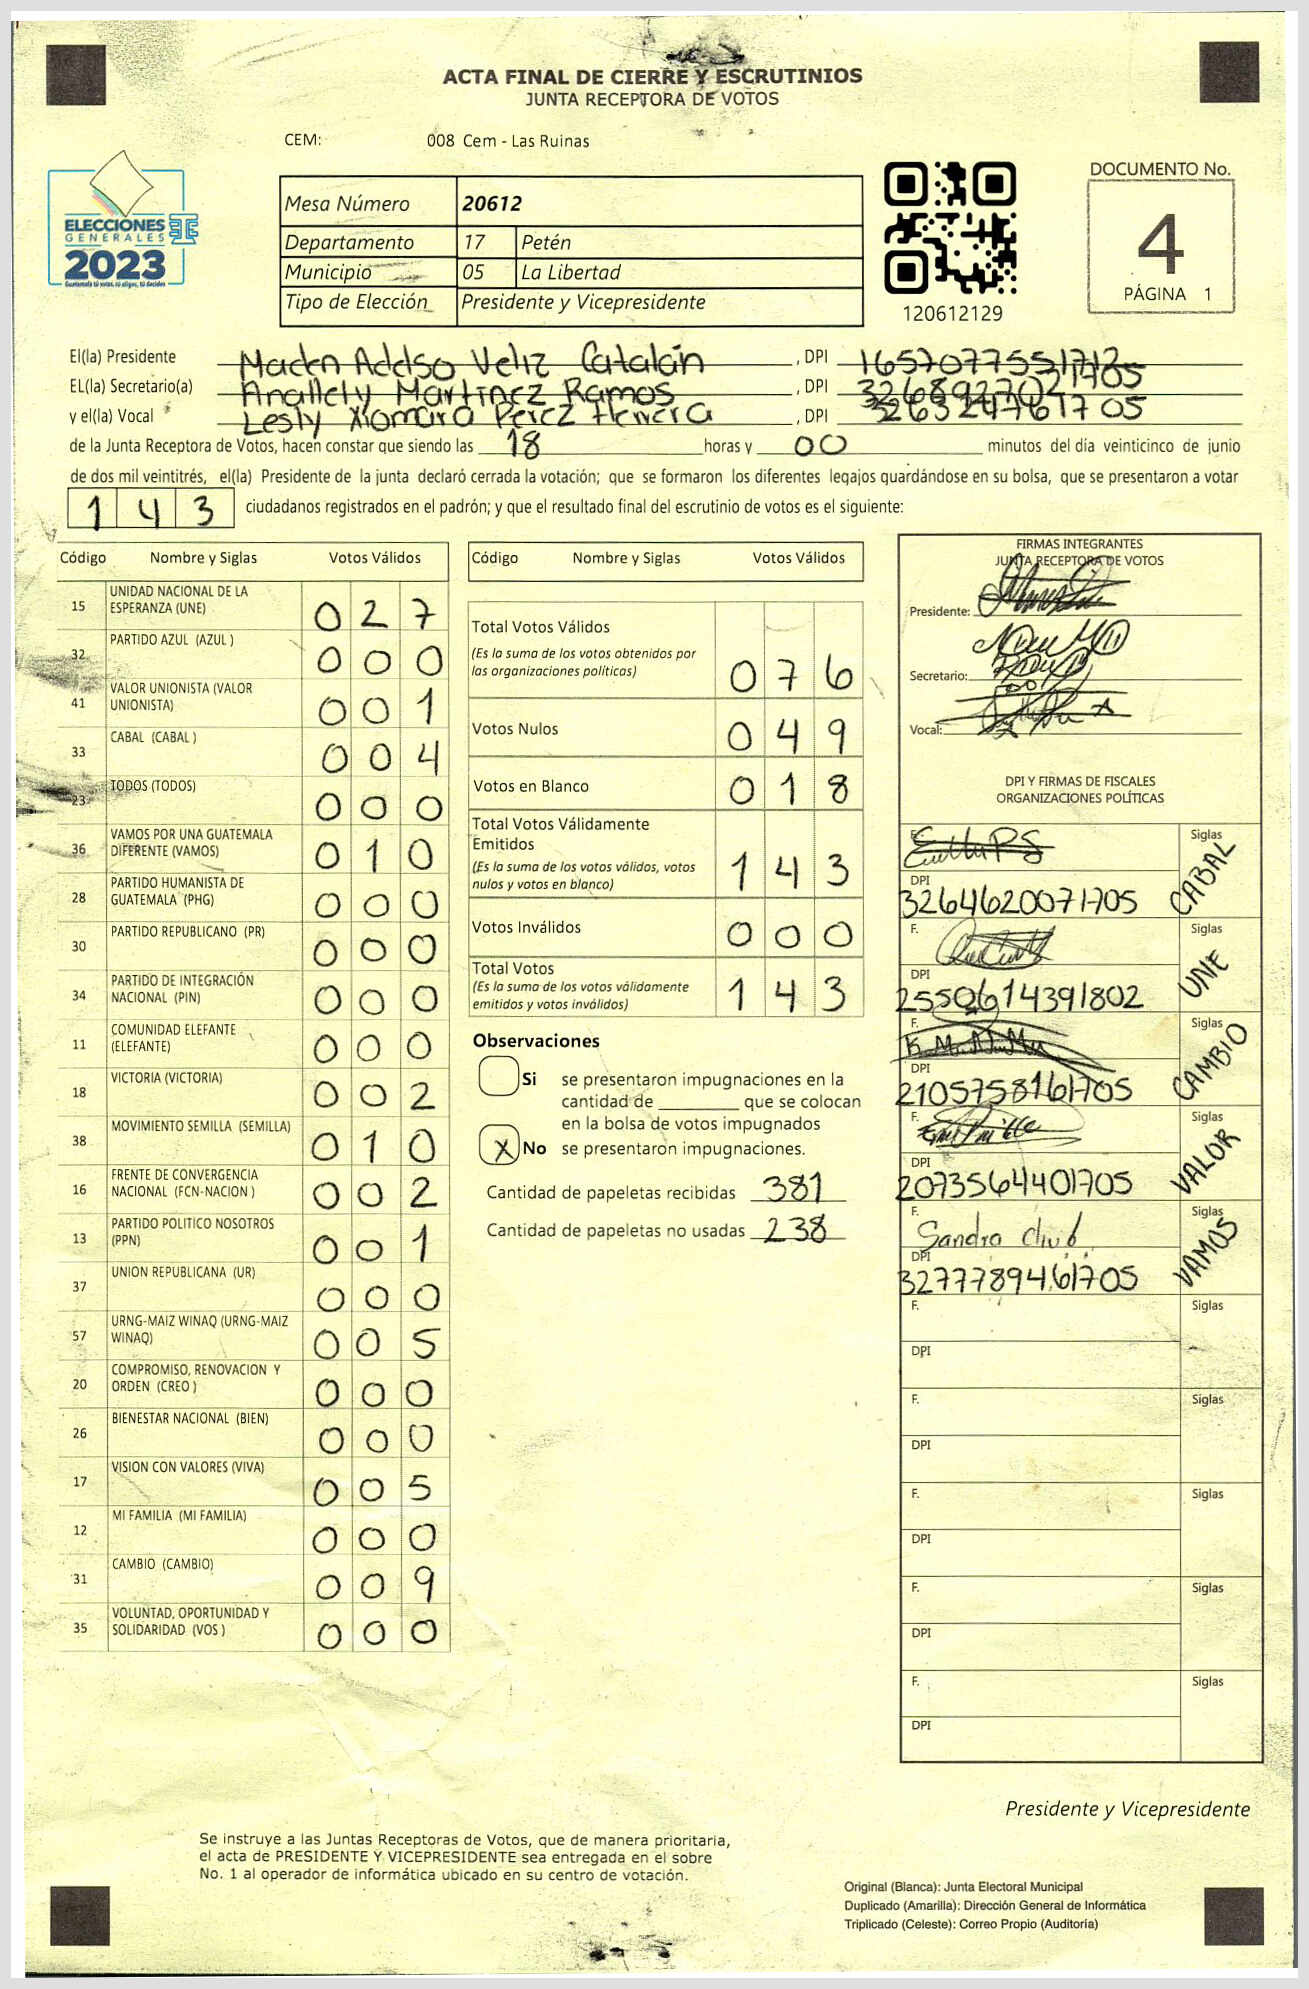 ACTA FINAL DE CIERRE Y ESCRUTINIOS
JUNTA RECEPTORA DE VOTOS
CEM: 008 Cem - Las Ruinas
ELECCIONES
GENERALES
2023
Guatemala tú votas, tú eliges, tú decides
Mesa Número 20612
Departamento 17 Petén
Municipio 05 La Libertad
Tipo de Elección Presidente y Vicepresidente
120612129
DOCUMENTO No.
4
PÁGINA 1
El(la) Presidente Veliz Catalán , DPI 1657077551712
EL(la) Secretario(a) Anallely Martinez Ramos , DPI
y el(la) Vocal Lesly Xiomara Perez Herrera , DPI
de la Junta Receptora de Votos, hacen constar que siendo las 18 horas y 00 minutos del día veinticinco de junio
de dos mil veintitrés, el(la) Presidente de la junta declaró cerrada la votación; que se formaron los diferentes legajos quardándose en su bolsa, que se presentaron a votar
143 ciudadanos registrados en el padrón; y que el resultado final del escrutinio de votos es el siguiente:
Código Nombre y Siglas Votos Válidos
15 UNIDAD NACIONAL DE LA ESPERANZA (UNE) 027
32 PARTIDO AZUL (AZUL ) 000
41 VALOR UNIONISTA (VALOR UNIONISTA) 001
33 CABAL (CABAL ) 004
23 TODOS (TODOS) 000
36 VAMOS POR UNA GUATEMALA DIFERENTE (VAMOS) 010
28 PARTIDO HUMANISTA DE GUATEMALA (PHG) 000
30 PARTIDO REPUBLICANO (PR) 000
34 PARTIDO DE INTEGRACIÓN NACIONAL (PIN) 000
11 COMUNIDAD ELEFANTE (ELEFANTE) 000
18 VICTORIA (VICTORIA) 002
38 MOVIMIENTO SEMILLA (SEMILLA) 010
16 FRENTE DE CONVERGENCIA NACIONAL (FCN-NACION ) 002
13 PARTIDO POLITICO NOSOTROS (PPN) 001
37 UNION REPUBLICANA (UR) 000
57 URNG-MAIZ WINAQ (URNG-MAIZ WINAQ) 005
20 COMPROMISO, RENOVACION Y ORDEN (CREO ) 000
26 BIENESTAR NACIONAL (BIEN) 000
17 VISION CON VALORES (VIVA) 005
12 MI FAMILIA (MI FAMILIA) 000
31 CAMBIO (CAMBIO) 009
35 VOLUNTAD, OPORTUNIDAD Y SOLIDARIDAD (VOS ) 000
Código Nombre y Siglas Votos Válidos
Total Votos Válidos
(Es la suma de los votos obtenidos por las organizaciones políticas) 076
Votos Nulos 049
Votos en Blanco 018
Total Votos Válidamente Emitidos
(Es la suma de los votos válidos, votos nulos y votos en blanco) 143
Votos Inválidos 000
Total Votos
(Es la suma de los votos válidamente emitidos y votos inválidos) 143
Observaciones
Si se presentaron impugnaciones en la
cantidad de ________ que se colocan
en la bolsa de votos impugnados
X No se presentaron impugnaciones.
Cantidad de papeletas recibidas 381
Cantidad de papeletas no usadas 238
FIRMAS INTEGRANTES
JUNTA RECEPTORA DE VOTOS
Presidente:
Secretario:
Vocal:
DPI Y FIRMAS DE FISCALES
ORGANIZACIONES POLÍTICAS
F. Siglas CABAL
DPI 3264620071705
F. Siglas UNE
DPI 2550614391802
F. Siglas CAMBIO
DPI 2105758161705
F. Siglas VALOR
DPI 2073564401705
F. Sandra Siglas VAMOS
DPI 3277789461705
F. Siglas
DPI
F. Siglas
DPI
F. Siglas
DPI
F. Siglas
DPI
F. Siglas
DPI
Presidente y Vicepresidente
Se instruye a las Juntas Receptoras de Votos, que de manera prioritaria,
el acta de PRESIDENTE Y VICEPRESIDENTE sea entregada en el sobre
No. 1 al operador de informática ubicado en su centro de votación.
Original (Blanca): Junta Electoral Municipal
Duplicado (Amarilla): Dirección General de Informática
Triplicado (Celeste): Correo Propio (Auditoría)